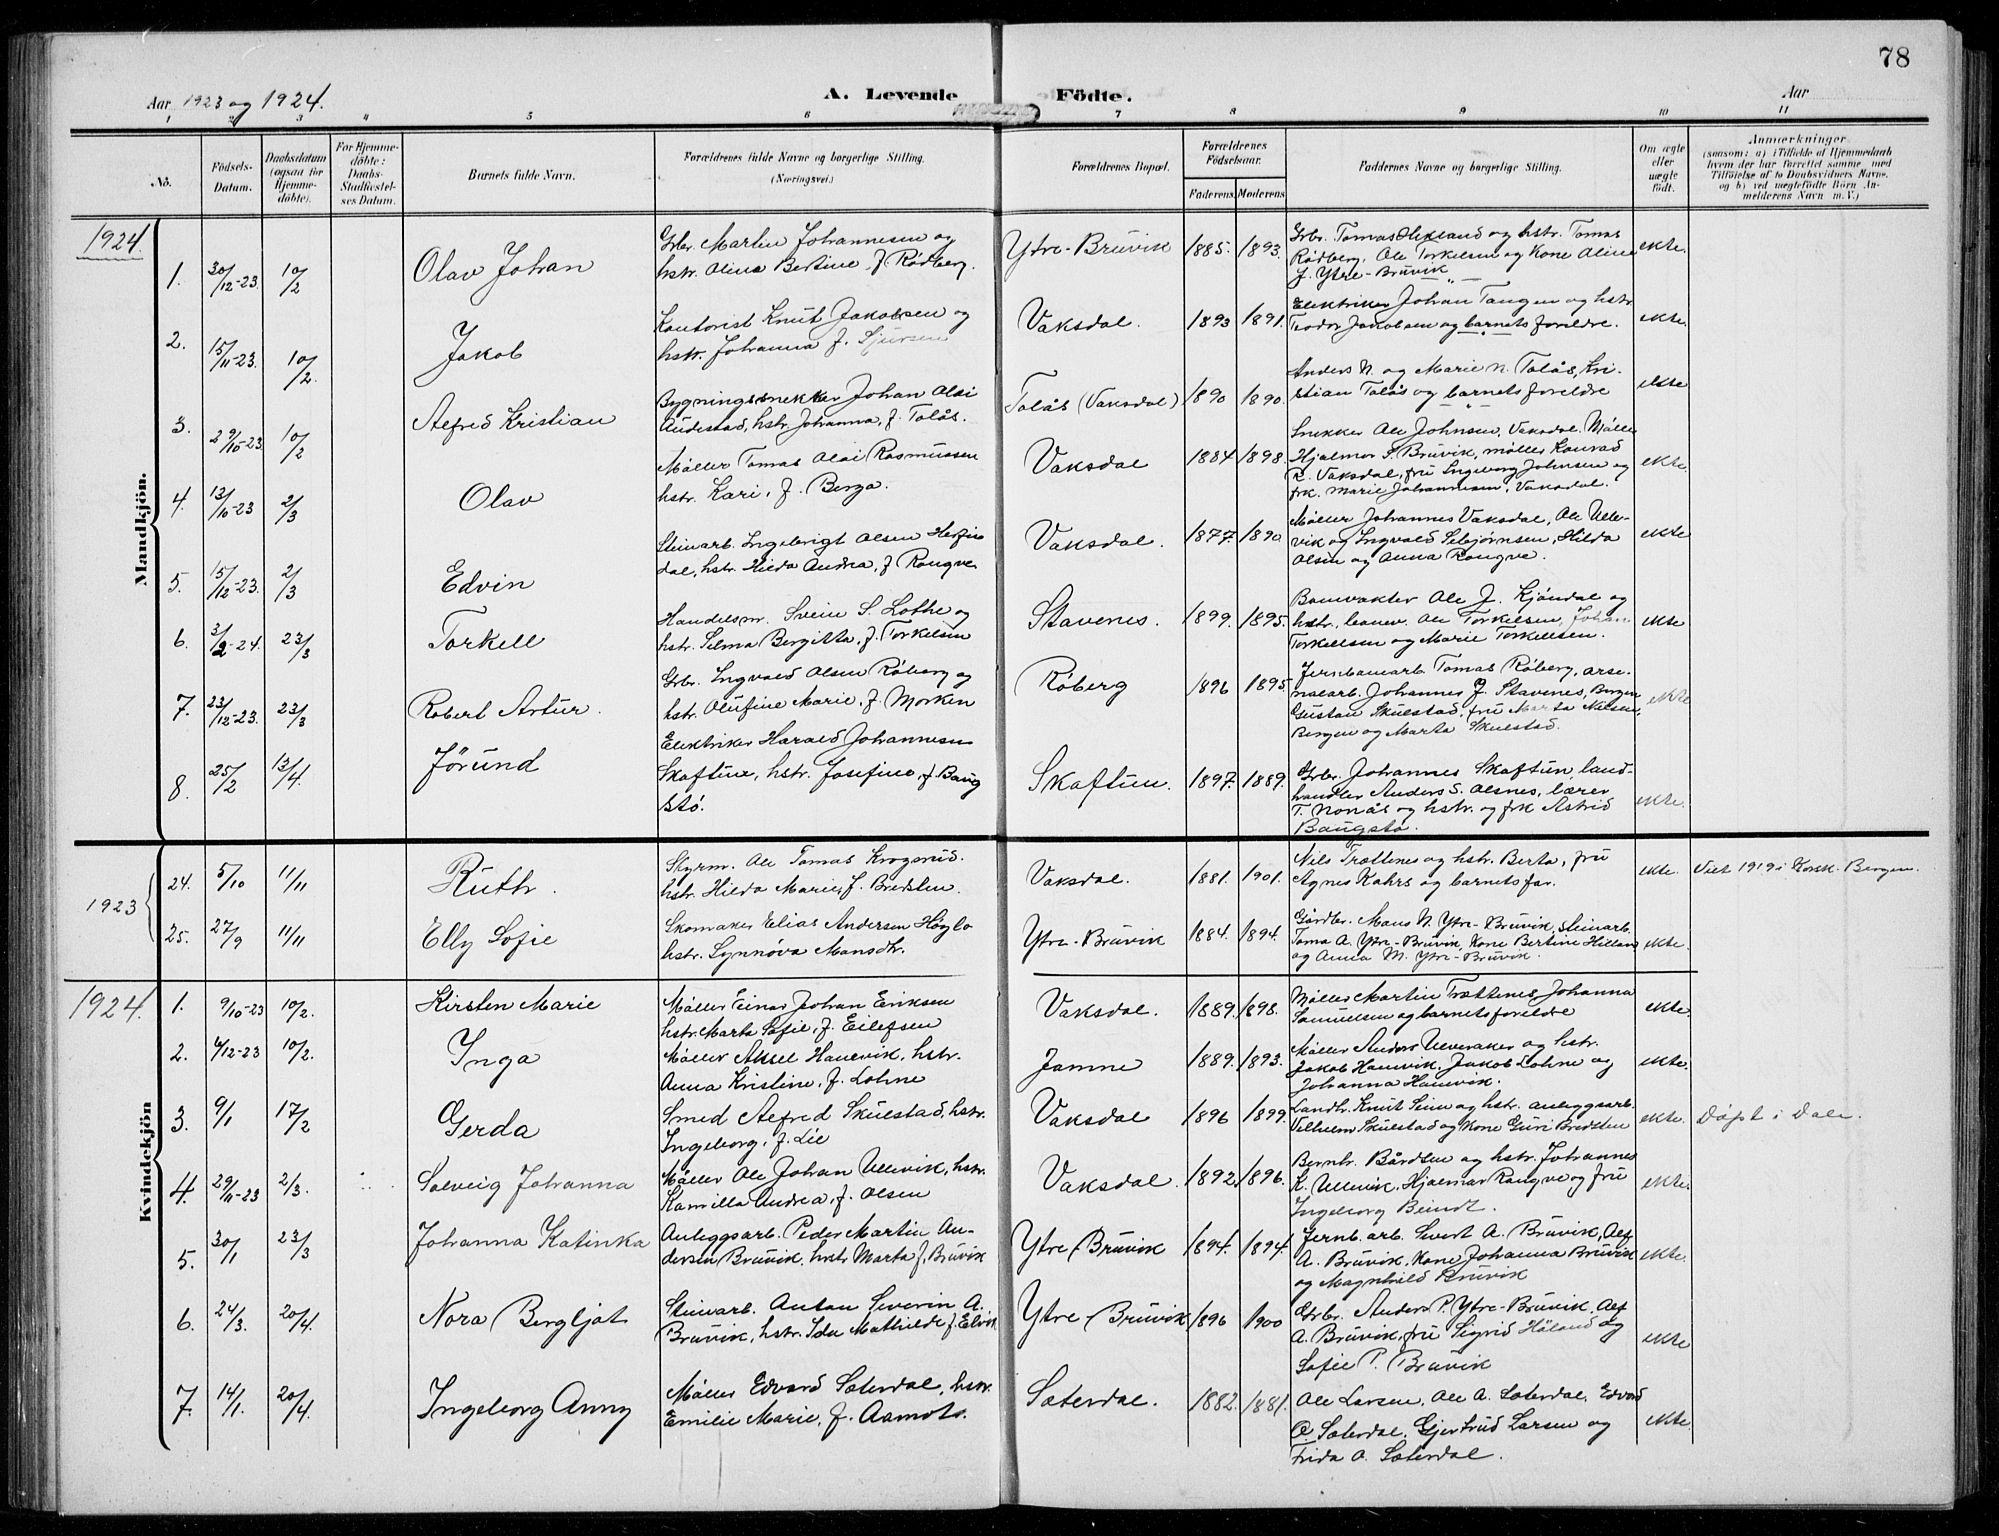 78
Aar 1923 og 1924.
A. Levende Födte.
Aar
1 2 3 4 5 6 7 8 9 10 11
No.
Födsels-Datum.
Daabsdatum (ogsaa for Hjemme-döbte).
For Hjemme-döbte: Daabs-Stadfæstel-ses Datum.
Barnets fulde Navn.
Forældrenes fulde Navne og borgerlige Stilling.
(Næringsvei.)
Forældrenes Bopæl.
Forældrenes Födselsaar.
Faderens. Moderens.
Faddernes Navne og borgerlige Stilling.
Om ægte eller uægte födt.
Anmærkninger
(saasom: a) i Tilfælde af Hjemmedaab
hvem der har forrettet samme med
Tilföielse af to Daabsvidners Navne.
og b) ved uægtefödte Börn An-
melderens Navn m. V.)
Mandkjön.
1924.
1. 30/12-23. 10/2 Olav Johan
Grbr. Martin Johannesen og
hstr. Olina Bertine f. Rödberg.
Ytre-Bruvik 1885. 1893.
Grbr. Tomas Helland og hstr. Tomas
Rødberg, Ole Torkelsen og Kone Aline
J. Ytre-Bruvik
ekte.
2. 15/11-23. 10/2. Jakob
Kontorist Knut Jakobsen og
hstr. Johanna f. Sjursen
Vaksdal. 1893 1891.
Elektriker Johan Tangen og hstr
Teodor Jakobsen og barnets foreldre.
ekte.
3. 29/10-23 10/2 Alfred Kristian
Bygningssnekker Johan Olai
Audestad, hstr. Johanna, f. Tolås.
Tolås (Vaksdal) 1890 1890.
Anders N. og Marie N. Tolås, Kri-
stian Tolås og barnets foreldre
ekte
4. 13/10-23 2/3 Olav
Møller Tomas Olai Rasmussen
hstr. Kari, f. Berga.
Vaksdal 1884 1898.
Snekker Ole Johnsen, Vaksdal. Møller
Hjalmar S. Bruvik, møller Konrad
R. Vaksdal, fru Ingeborg Johnsen og
frk. Marie Johannesen, Vaksdal.
ekte
5. 15/12-23. 2/3 Edvin
Steinarb. Ingebrigt Olsen Herfin
dal, hstr. Hilda Andrea, f Rongve
Vaksdal. 1877. 1890
Møller Johannes Vaksdal, Ole Ulle-
vik og Ingvald Sebjørnsen, Hilda
Olsen og Anna Rongve.
ekte
6. 3/2-24. 23/3 Torkell
Handelsm. Svein S. Lothe og
hstr. Selma Bergitta, f. Torkelsen
Stavenes. 1899. 1895.
Banevakter Ole J. Kjöndal og
hstr. Ole Torkelsen, Johan
Torkellsen og Marie Torkellsen.
ekte
7. 23/12-23. 23/3 Robert Artur.
Grbr. Ingvald Olsen Röberg og
hstr. Olufine Marie, f. Morken
Röberg 1896 1895.
Jernbanearb. Tomas Röberg, arse-
nalarb. Johannes J. Stavenes, Bergen
Gustav Skulstad, fru Marta Nilsen,
Bergen og Marta Skulstad.
ekte
8. 25/2 13/4. Jörund
Elektriker Harald Johannesen
Skaftun, hstr. Josefine, f. Baug
stö.
Skaftun. 1897. 1889.
Grbr. Johannes Skaftun, land-
handler Anders S. Olsnes, lærer
T. Nonås og hstr. og frk Astrid
Baugstö.
ekte.
1923
24. 5/10 11/11 Ruth.
Styrm. Ole Tomas Krogsrud.
hstr. Hilda Marie, f. Bredsten.
Vaksdal. 1881. 1901.
Nils Trættenes og hstr. Berta, fru
Agnes Kahrs og barnets far.
ekte. Viet 1919 i Korsk. Bergen.
25. 27/9 11/11 Elly Sofie
Skomaker Elias Andersen Höglo
hstr. Synnöva Mansdtr.
Ytre-Bruvik 1884. 1894.
Gårdbr. Mans N. Ytre-Bruvik, steinarb.
Toma A. Ytre-Bruvik, Kone Bertine Hilland
og Anna M. Ytre-Bruvik.
ekte.
Kvindekjön
1924.
1. 9/10-23 10/2. Kirsten Marie
Møller Einar Johan Eriksen
hstr. Marta Sofie, f. Eilefsen
Vaksdal. 1889. 1898.
Møller Martin Trættenes, Johanna
Samuelsen og barnets foreldre
ekte.
2. 4/12-23 10/2. Inga
Møller Aksel Hanevik, hstr.
Anna Kristine, f. Lohne
Jamne 1889. 1893.
Møller Anders Ulveraker og hstr.
Jakob Hanevik, Jakob Lohne og
Johanna Hanevik.
ekte.
3. 9/1 17/2 Gerda
Smed Alfred Skulstad, hstr.
Ingeborg, f. Lie
Vaksdal 1896 1899.
Landh. Knut Seim og hstr. anleggsarb.
Vilhelm Skulstad og Kone Guri Bredsten
ekte. Döpt i Dale.
4. 29/11-23 2/3. Solveig Johanna
Møller Ole Johan Ullevik, hstr.
Kamilla Andrea, f. Olsen
Vaksdal. 1892. 1896.
Bernh. Bårdsen og hstr. Johannes
K. Ullevik, Hjalmar Rongve og fru
Ingeborg Beindt.
ekte.
5. 30/1 23/3 Johanna Katinka
Anleggsarb. Peder Martin An-
dersen Bruvik, hstr Marta f. Bruvik
Ytre-Bruvik 1894. 1894.
Jernb. arb. Sivert A. Bruvik, Alf
A. Bruvik, Kone Johanna Bruvik
og Magnhild Bruvik
ekte.
6. 24/3. 20/4. Nora Bergljot
Steinarb. Anton Severin A.
Bruvik, hstr. Ida Mathilde f. Elvik
Ytre-Bruvik 1896 1900
Grbr. Anders P. Ytre-Bruvik, Alf
A. Bruvik, fru Sigrid Höland og
Sofie P. Bruvik
ekte
7. 14/1. 20/4. Ingeborg Anny
Møller Edvard Sæterdal, hstr.
Emilie Marie, f. Aamot.
Sæterdal. 1882. 1881.
Ole Larsen, Ole A. Sæterdal, Edvard
O. Sæterdal, Gjertrud Larsen og
Frida O. Sæterdal.
ekte.